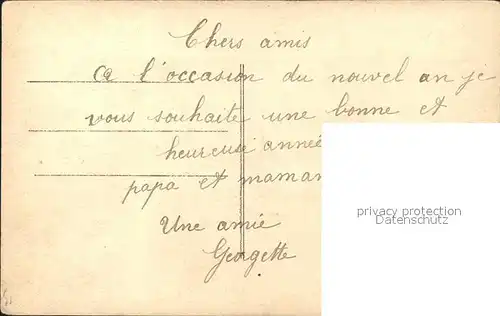 Chers amis
A l'occasion du nouvel an je
vous souhaite une bonne et
heureuse année
papa et maman
Une amie
Georgette
privacy protection
Datenschutz